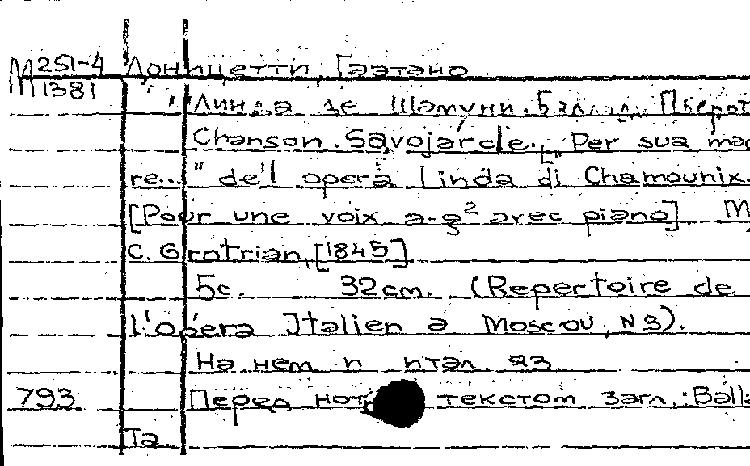 М 251-4 Доницетти, Гаэтано
М 1381
"Линда де Шамуни. Пьерот
Chanson Savojarde. ["Per sua mad
re..." dell' opera Linda di Chamounix.
[Pour une voix a-g² avec piano] M
C. Grotrian, [1845]
5c. 32cm. (Repertoire de
l'opera Italien a Moscou, N 3).
На нем. и итал. яз.
793 Перед нот текстом загл.: Balla
Та